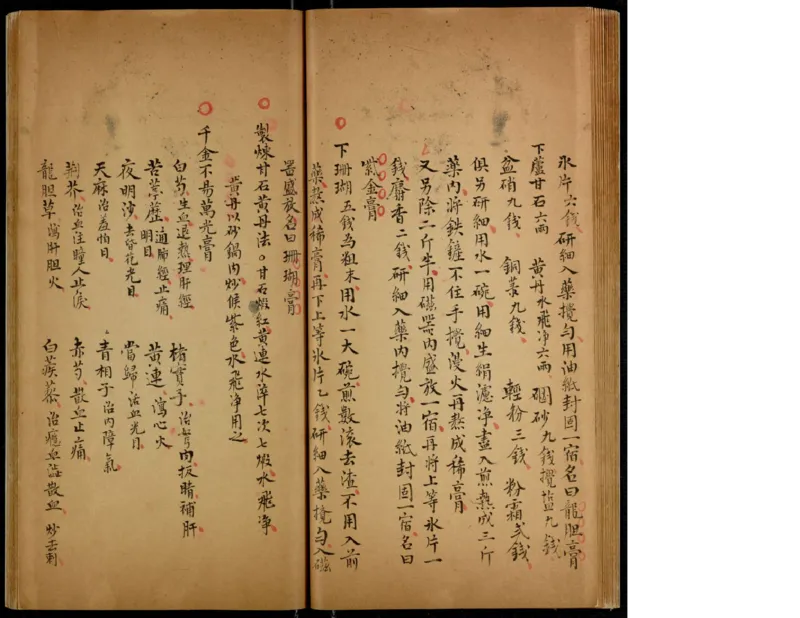 氷片六錢研細入藥攪勻用油紙封固一宿名曰龍胆膏
下蘆甘石六兩 黃丹水飛淨六兩 硇砂九錢攪塩九錢
盆硝九錢 銅菉九錢 輕粉三錢 粉霜弍錢
俱另研細用水一碗用細生絹濾淨盡入煎熬成三斤
藥內將鉄鏟不住手攪漫火再熬成稀膏
又另除二斤半用磁器內盛放一宿再將上等氷片一
錢麝香二錢研細入藥內攪勻將油紙封固一宿名曰
紫金膏
下珊瑚五錢為粗末用水一大碗煎数滚去渣不用入前
藥熬成稀膏再下上等氷片乙錢研細入藥攪勻入磁
器盛放名曰珊瑚膏
製煉甘石黃丹法 甘石煅紅黃連水淬七次七煅水飛淨
黃丹以砂鍋內炒候紫色水飛淨用之
千金不易萬光膏
白芍生血退熱理肝經 楮實子治胬肉扳睛補肝
苦葶藶通肺經止痛明目 黃連瀉心火
夜明沙去昏花光目 當歸活血光目
天麻治羞怕日 青相子治內障氣
荊芥治血注瞳人止淚 赤芍散血止痛
龍胆草瀉肝胆火 白蒺藜治瘀血澁散血炒去刺